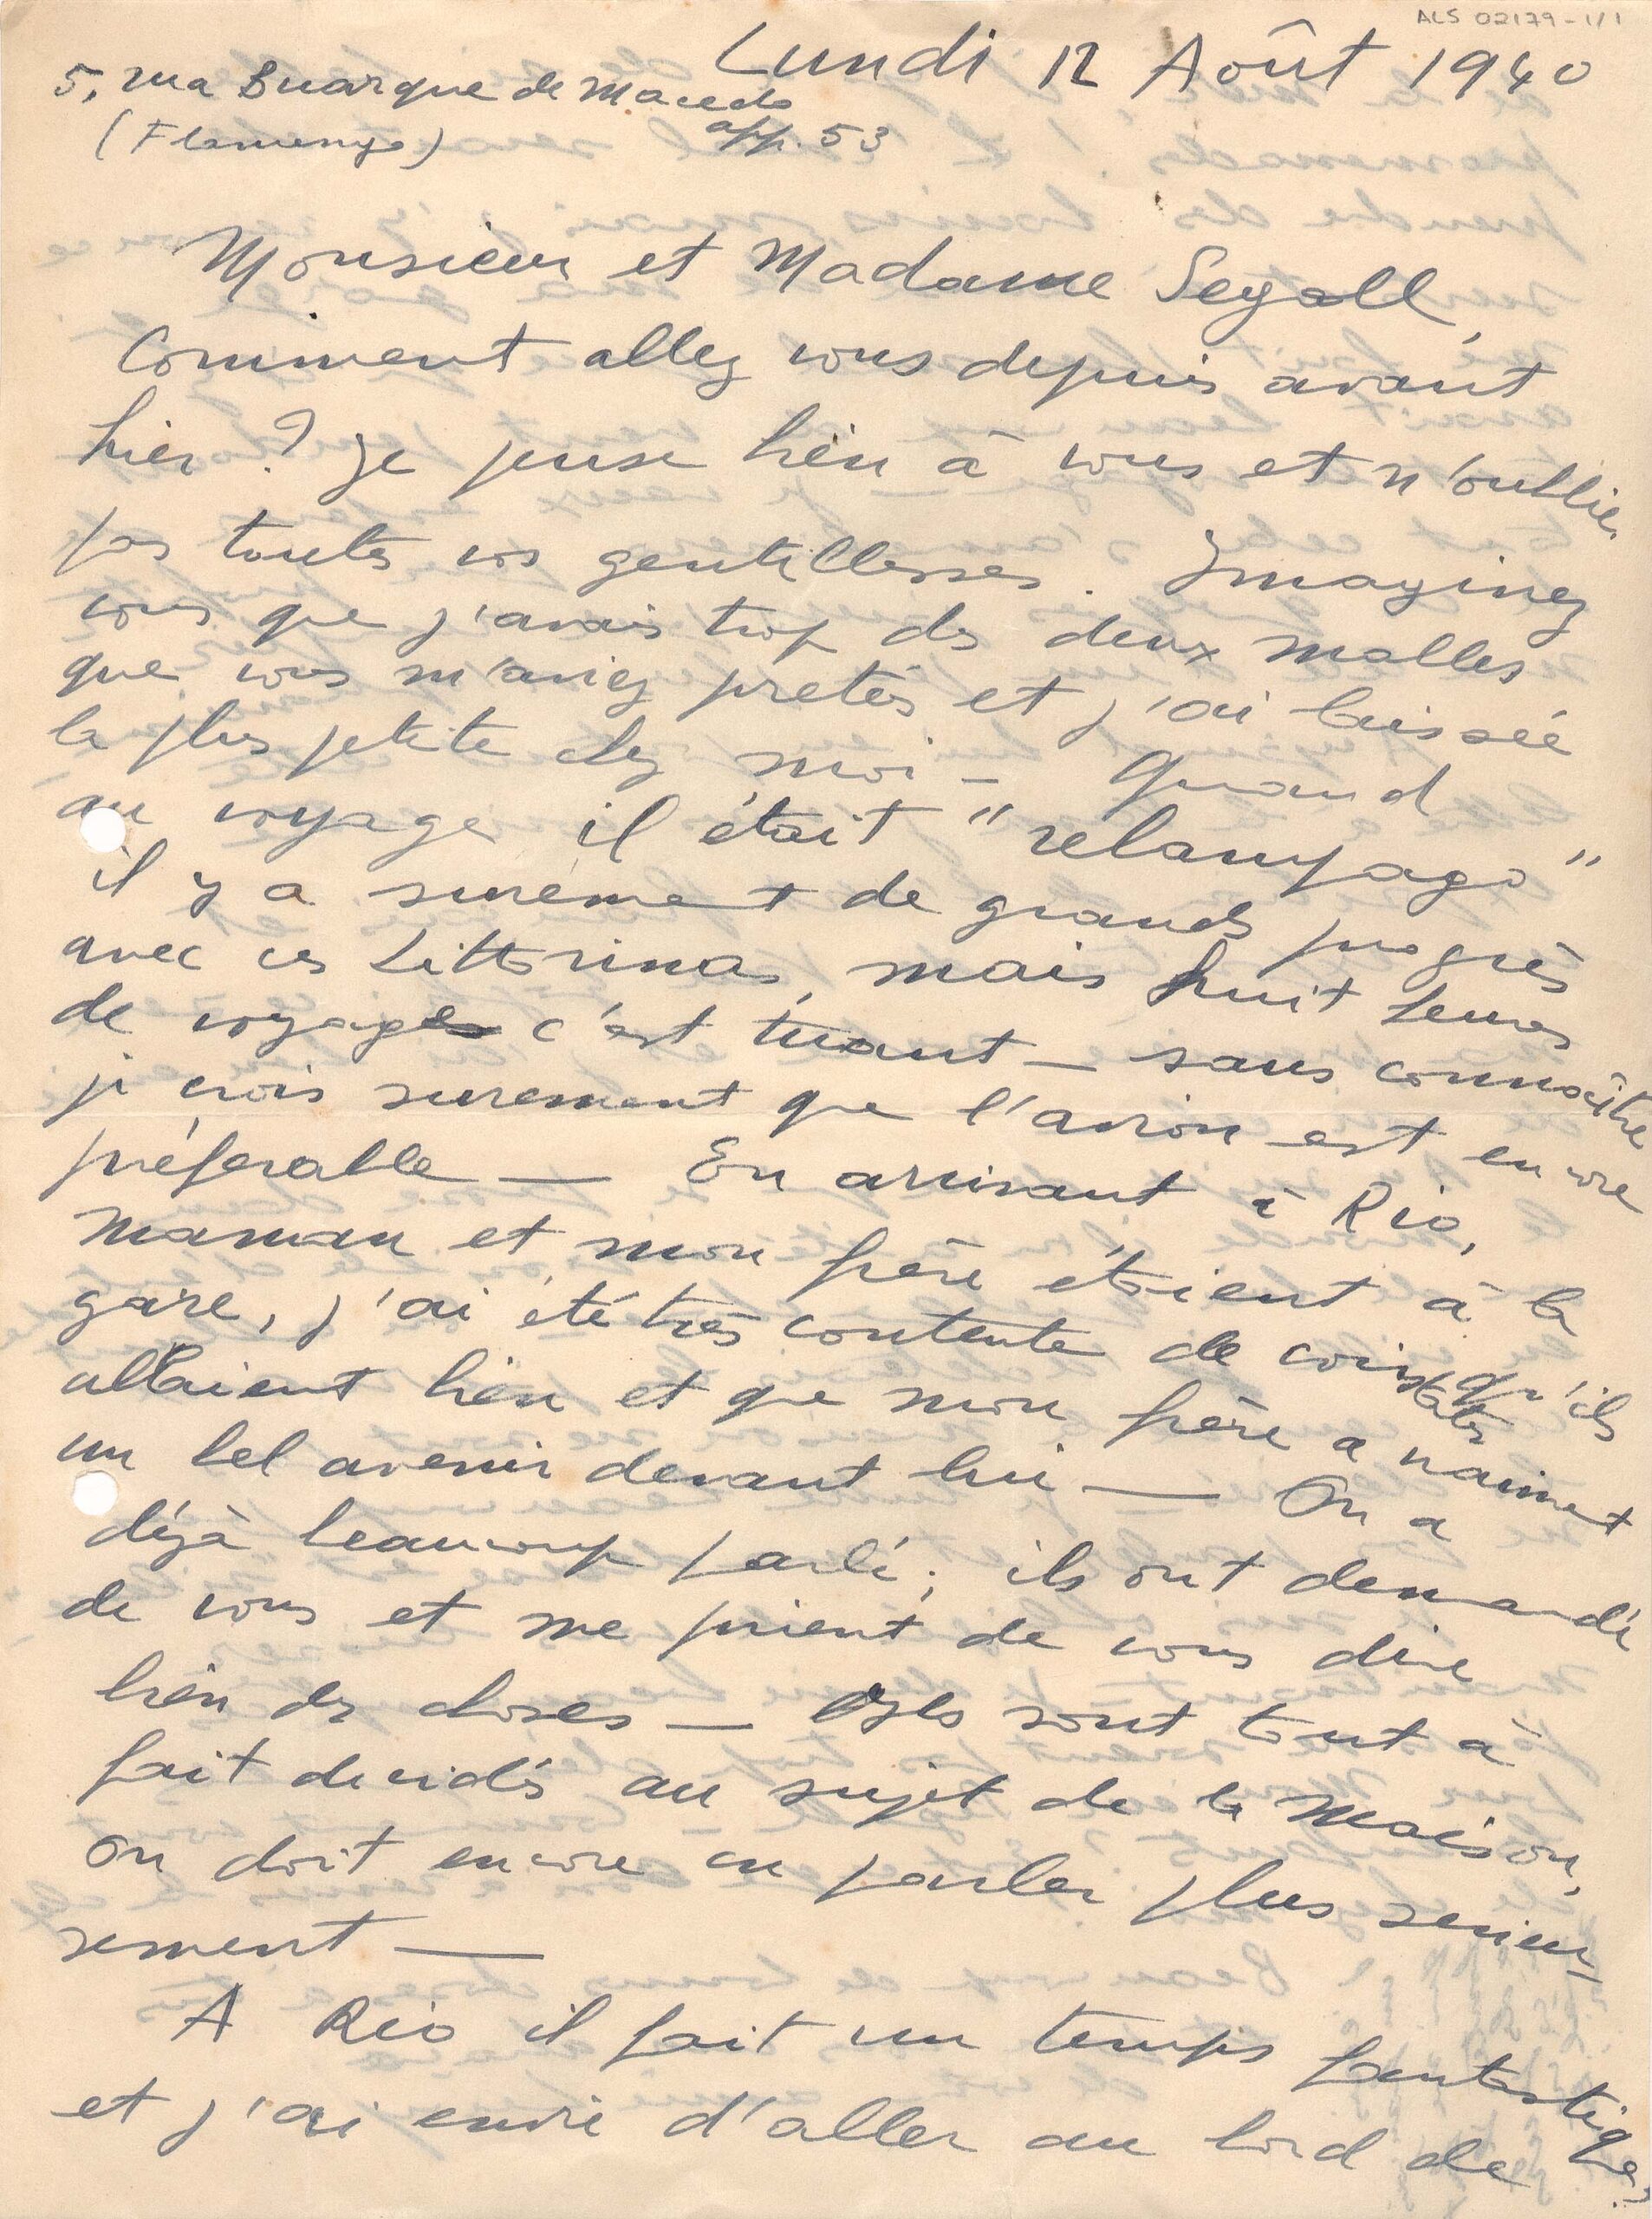 ALS 02179-1/1
Lundi 12 Août 1940
5, rua Buarque de Macedo
app. 53
(Flamengo)
Monsieur et Madame Segall,
Comment allez vous depuis avant
hier ? Je pense bien à vous et n'oublie
pas toutes vos gentillesses. Imaginez
vous que j'avais trop des deux malles
que vous m'aviez pretés et j'ai laissée
la plus petite chez moi — Quand
au voyage il était "relampago"
il y a surement de grands progrès
avec ces Littorinas, mais huit heures
de voyage c'est tuant — sans connaître
je crois surement que l'avion est encore
préférable — En arrivant à Rio,
maman et mon frère étaient à la
gare, j'ai été très contente de constater qu'ils
allaient bien et que mon frère a vraiment
un bel avenir devant lui — On a
déjà beaucoup parlé ; ils ont demandé
de vous et me prient de vous dire
bien des choses — Ils sont tout à
fait decidés au sujet de la maison,
on doit encore en parler plus serieu-
sement —
A Rio il fait un temps fantastique
et j'ai envie d'aller au bord de